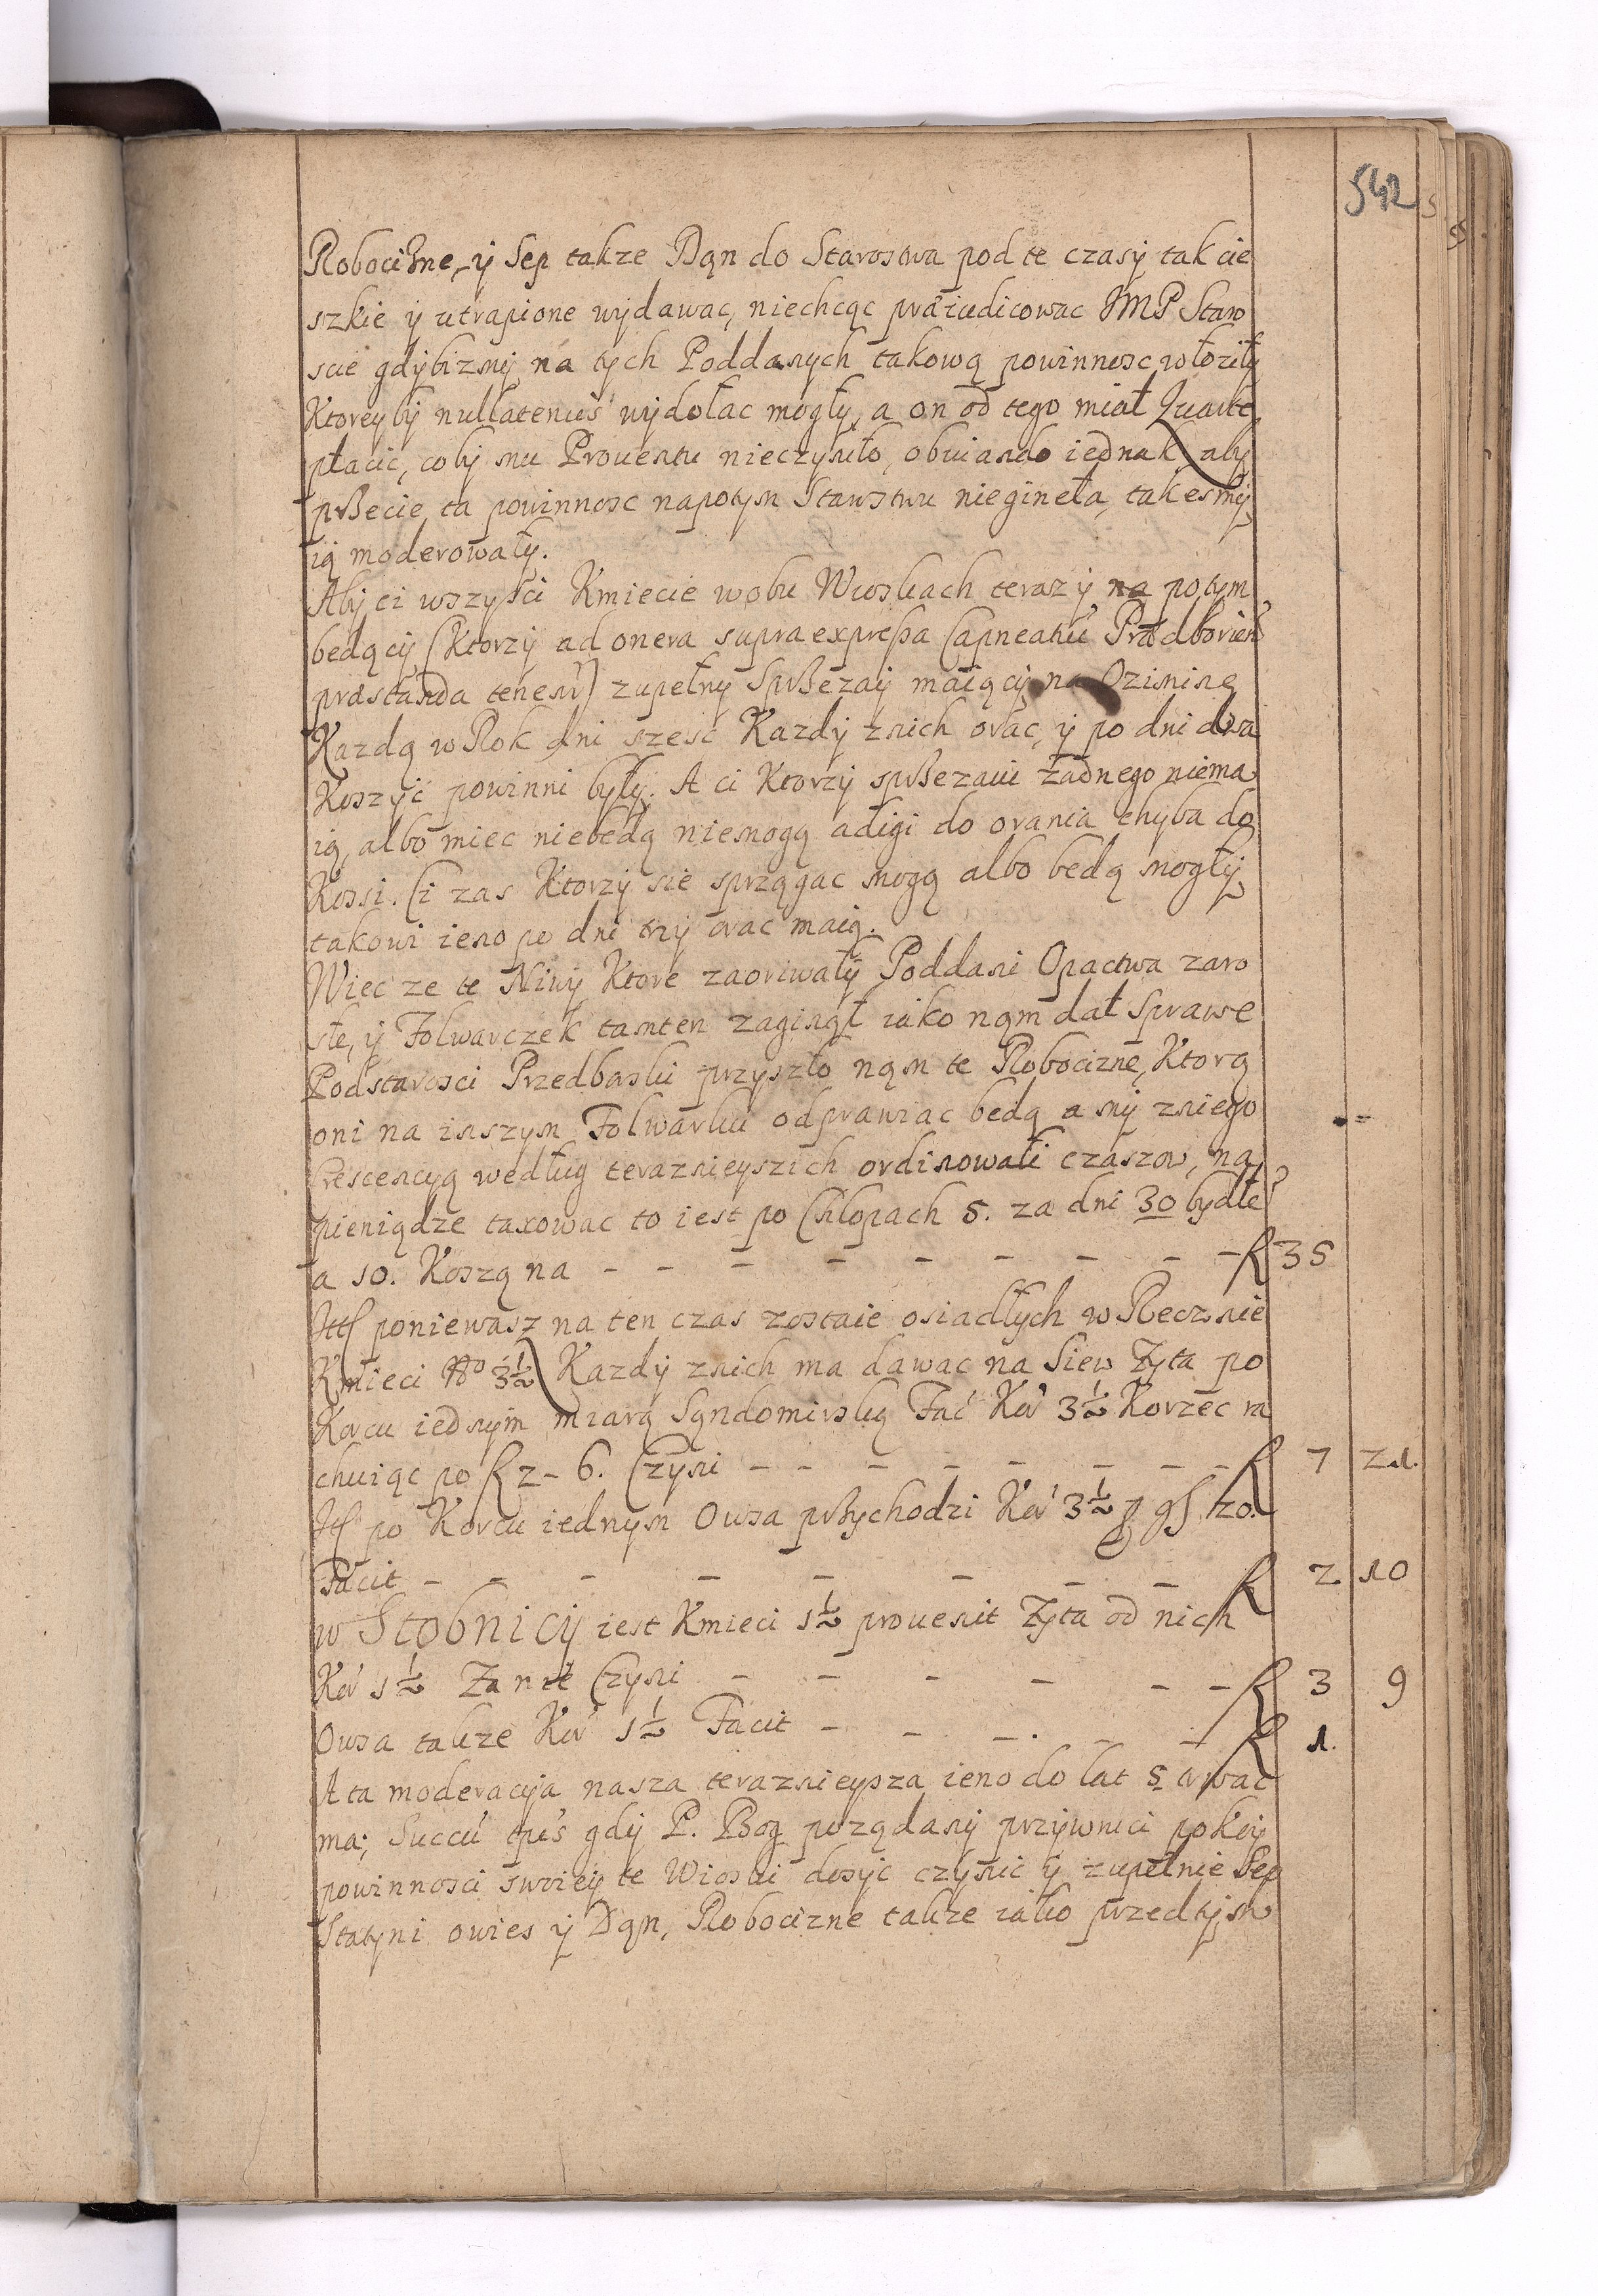 542
Robociznę, y Sep takze Dąn do Starostwa pod te czasy tak cie
szkie y utrapione wydawac, niechcąc præiudicowac JMP Staro
scie gdybizmy na tych Poddanych takową powinnosc włozily
Ktoreyby nullatenus wydołac mogły, a on od tego miał Quarte
płacic, coby mu Prouentu nieczyniło, obuiando iednak aby
przecie ta powinnosc napotym Starostwu nieginęła, takesmy
ią moderowały.
Aby ci wszysci Kmiecie wobu Wioskach teraz y na potym
będącÿ (Ktorzy ad onera supra expressa Capneatui Prædborien
præstanda tenent) zupełny Sprzezay maiącÿ na Oziminę
Kazdą w Rok dni szesc Kazdy znich orac, y po dni dwa
Koszyc powinni były. A ci Ktorzy sprzezaiu zadnego niema
ią, albo miec niebedą niemogą adigi do orania chyba do
Kossi. Ci zas Ktorzy sie sprzągac mogą albo bedą mogły,
takowi ieno po dni trzy orac maią.
Wiec ze te Niwy Ktore zaoriwały Poddani Opactwa zaro
słe, y Folwarczek tamten zaginął iako nąm dał Sprawe
Podstarosci Przedborski przyszło nąm te Robociznę, Ktorą
oni na inszym Folwarku odprawiac bedą a my zniego
Crescencyą według terazneyszich ordinowali czaszow, na
pieniądze taxowac to iest po Chłopach 5. za dni 30 bydłe
a 10. Koszą na - - - - - - - - - R 35
Itt poniewasz na ten czas zostaie osiadłych w Recznie
Kmieci No 3½ Kazdy znich ma dawac na Siew Zyta po
Korcu iednym miarą Sąndomirską Fac Kor 3½ Korzec ra
chuiąc po R 2 - 6. Czyni - - - - - - - R 7 21.
Itt po Korcu iednym Owsa przychodzi Kor 3½ p gr 20.
Facit - - - - - - - - R 2 10
w Stobnicy iest Kmieci 1½ prouenit Zyta od nich
Kor 1½ Zanie Czyni - - - - - - R 3 9
Owsa takze Kor 1½ Facit - - - - - R 1.
A ta moderacyja nasza teraznieysza ieno do lat 5 trwac
ma; Succu tpis gdy P. Bog poządany przywruci pokoy
powinnosci swoiey te Wioski dosyc czynic y zupełnie Sep
Statyni owies y Dąn, Robociznę takze iako przedtym